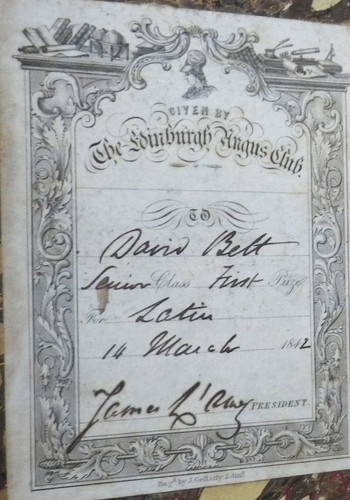 GIVEN BY
The Edinburgh Angus Club.
TO
David Bett
Senior Class First Prize
For Latin
14 March 1842
James PRESIDENT.
Engd. by J. Gellatly Edinr.